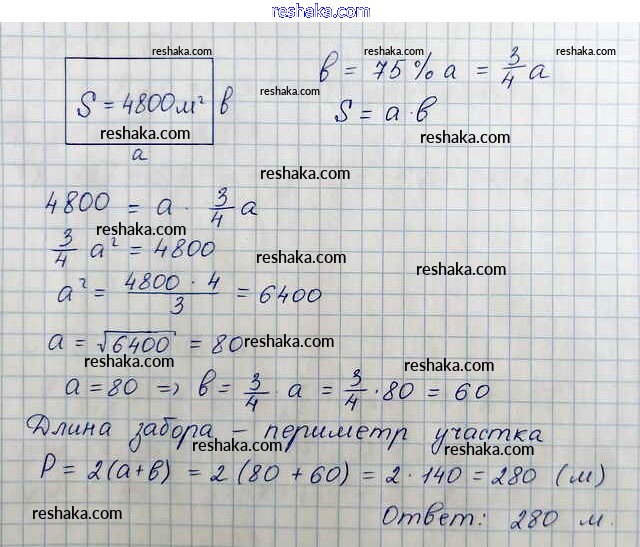 reshaka.com
reshaka.com
reshaka.com reshaka.com reshaka.com
b = 75% a = 3/4 a
reshaka.com
S = 4800 м² b
S = a · b
reshaka.com reshaka.com
a
reshaka.com
4800 = a · 3/4 a
reshaka.com
3/4 a² = 4800
reshaka.com
reshaka.com
a² = 4800 · 4 / 3 = 6400
reshaka.com
a = √6400 = 80
reshaka.com reshaka.com
reshaka.com
a = 80 => b = 3/4 · a = 3/4 · 80 = 60
reshaka.com
Длина забора – периметр участка
reshaka.com reshaka.com
P = 2(a+b) = 2(80 + 60) = 2 · 140 = 280 (м)
reshaka.com reshaka.com reshaka.com
Ответ: 280 м.
reshaka.com